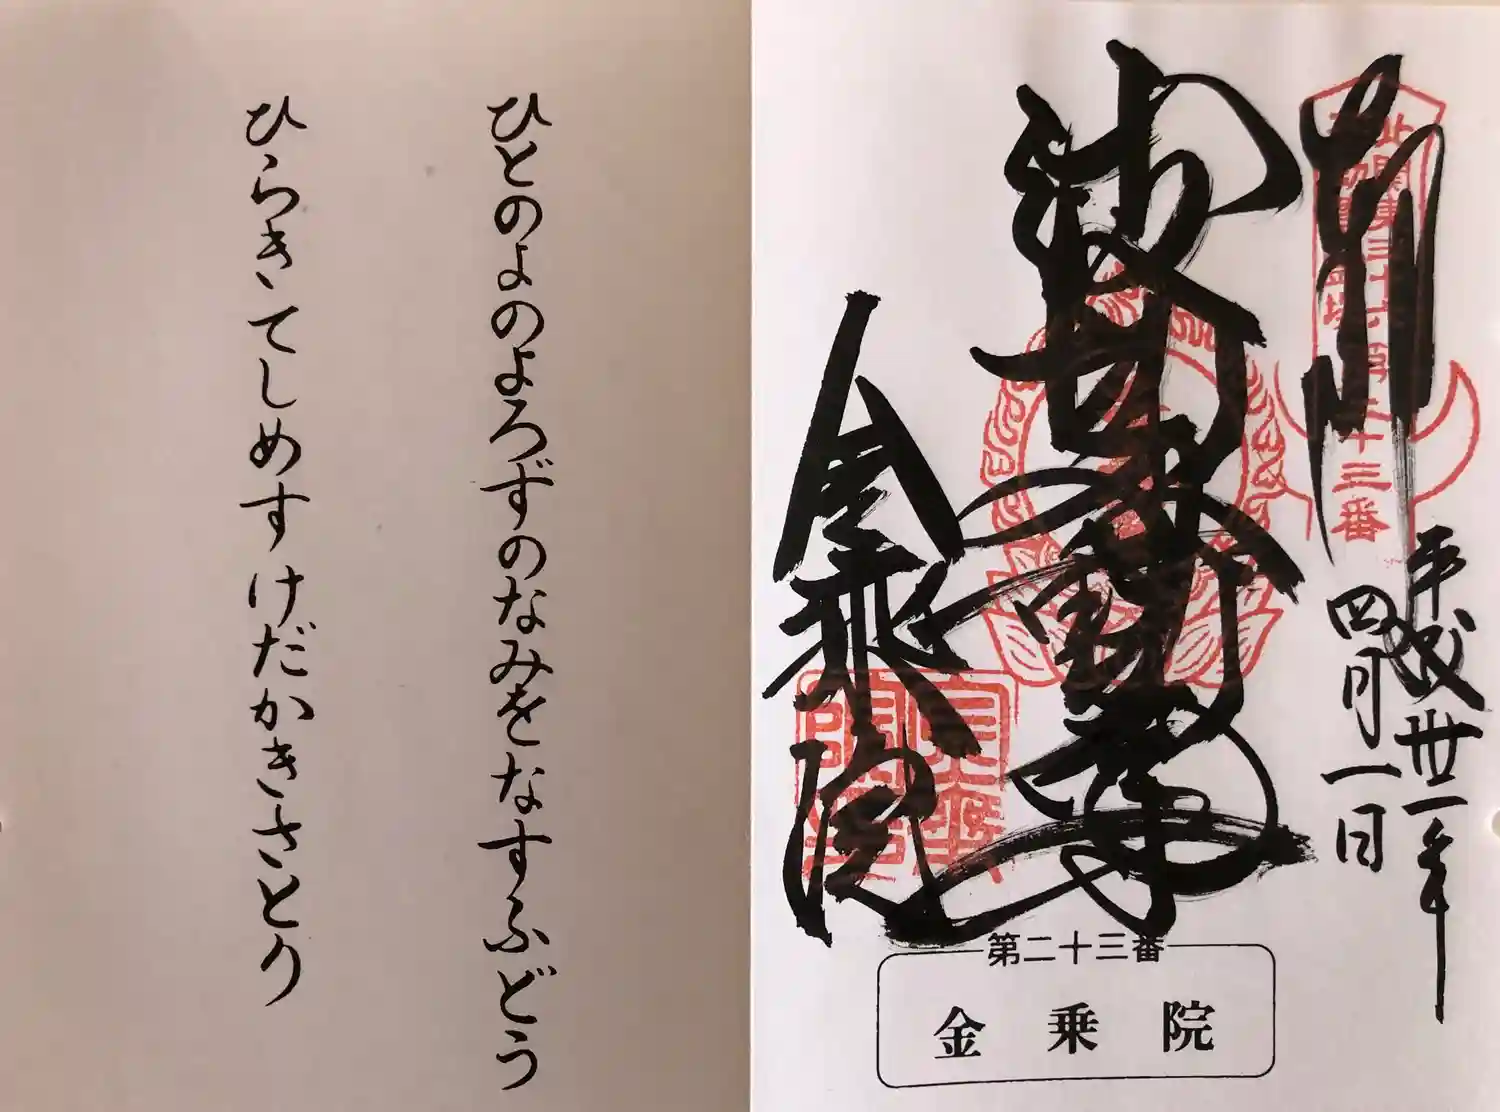 奉拝
北関東三十六
不動尊霊場
二十三番
平成卅一年
四月一日
波切不動尊
金乗院
第二十三番
金乗院
ひとのよのよろずのなみをなすふどう
ひらきてしめすけだかきさとり